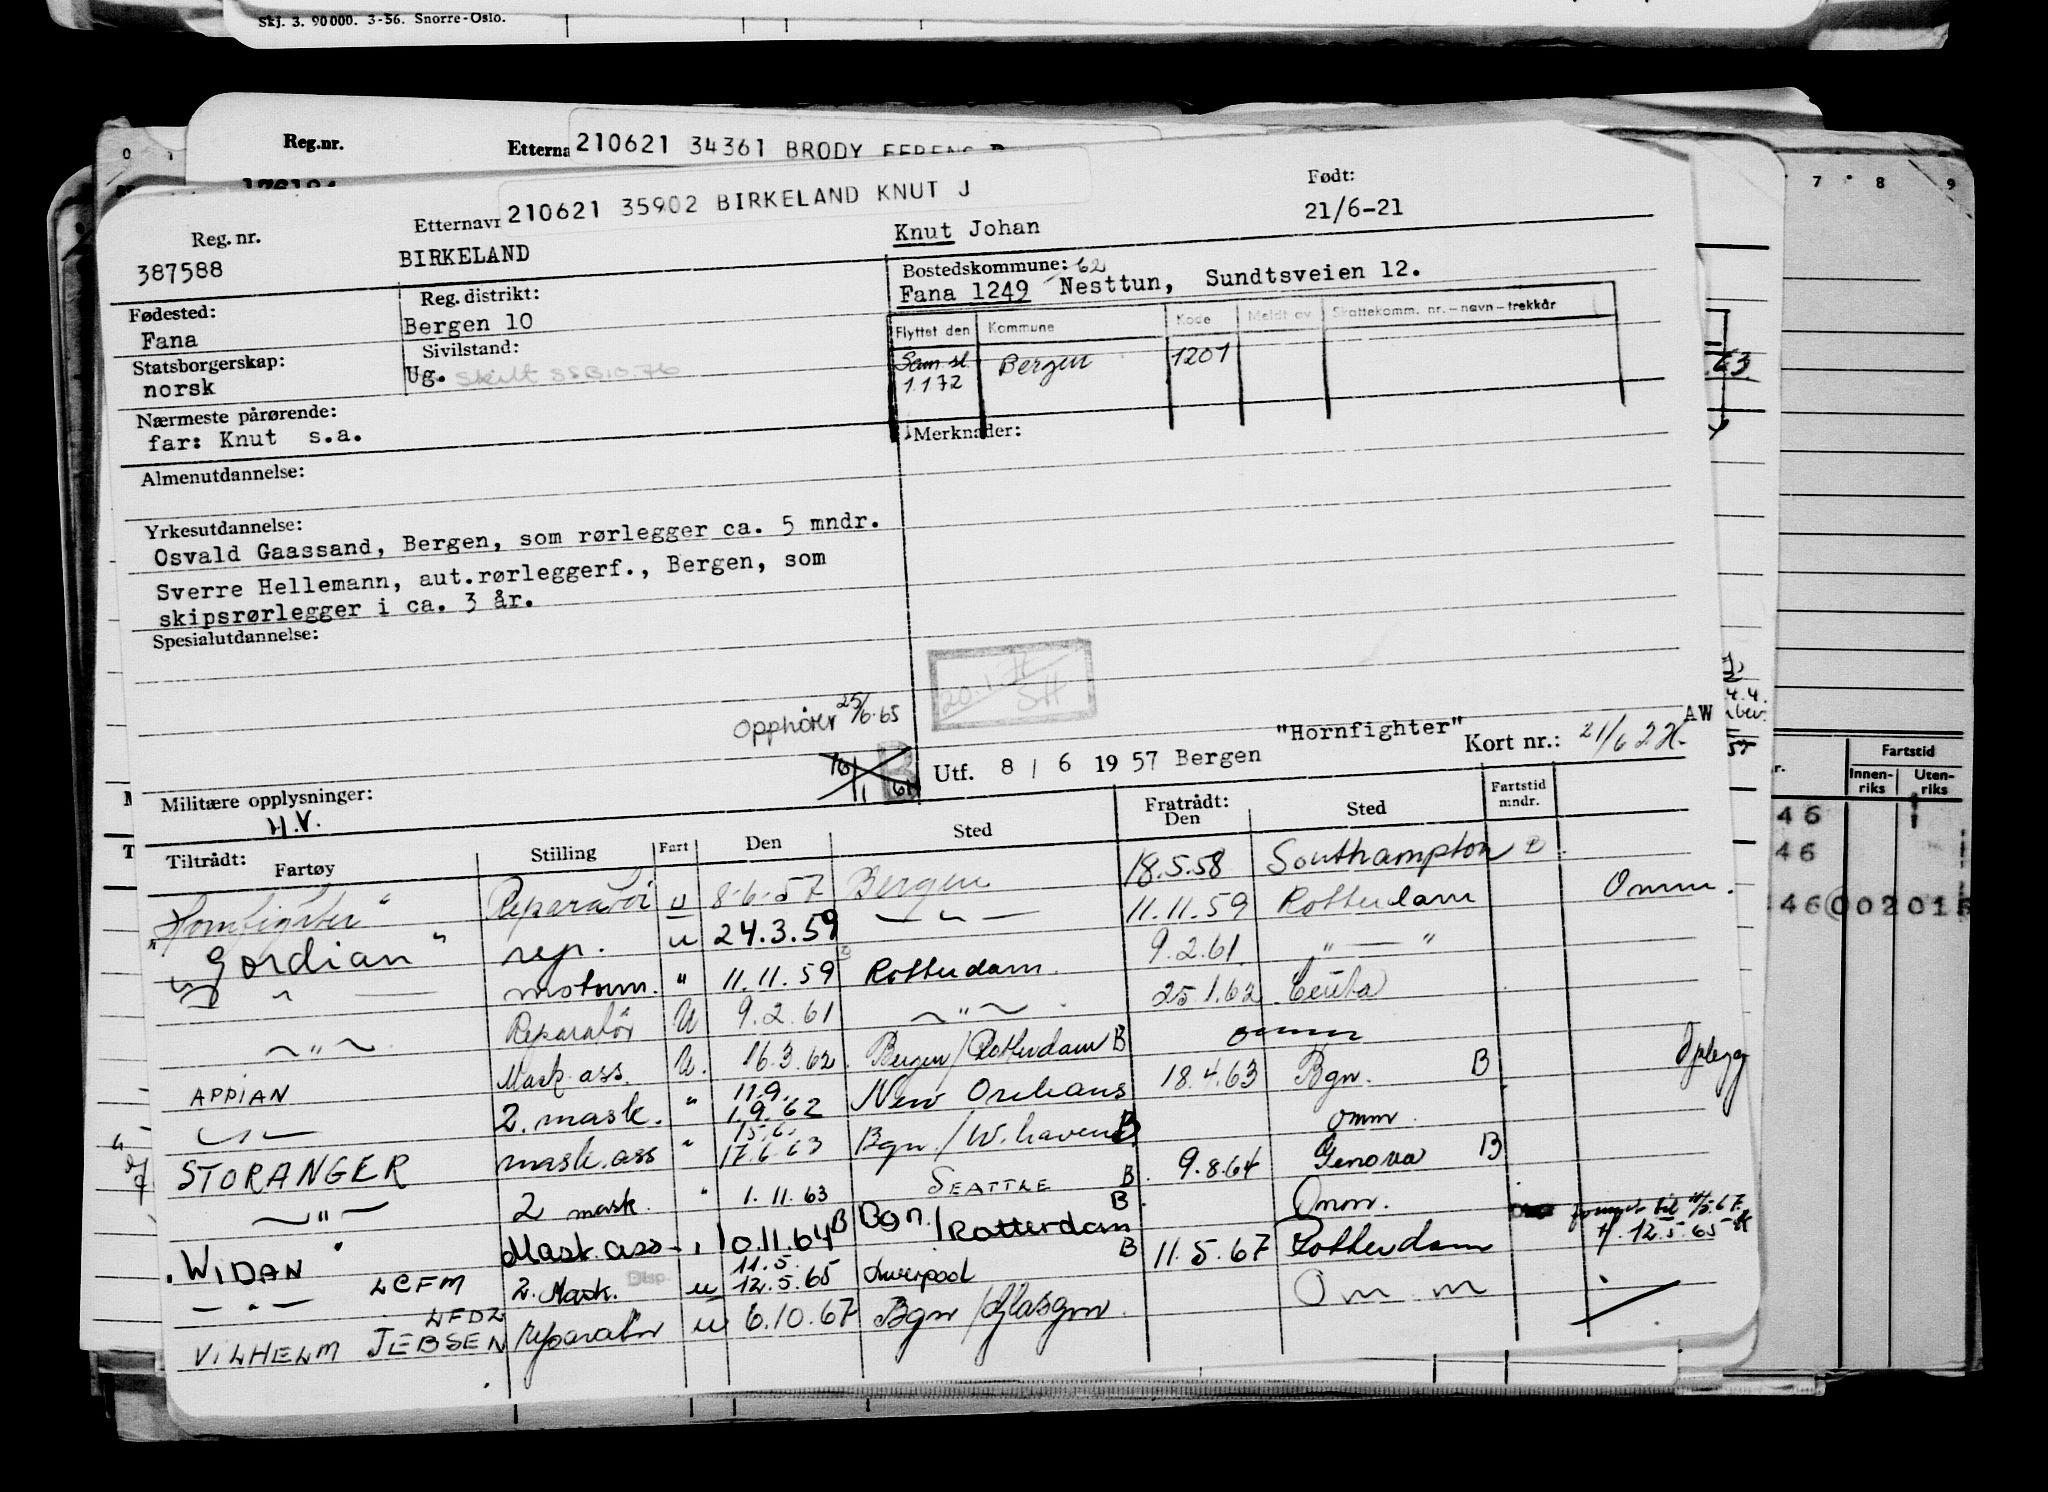 Skj. 3. 90000. 3-56. Snorre-Oslo.
Reg.nr. Etterna 210621 34361 BRODY
210621 35902 BIRKELAND KNUT J
Reg. nr. Etternavn Født:
387588 BIRKELAND Knut Johan 21/6-21
Fødested: Reg. distrikt: Bostedskommune: 62
Fana Bergen 10 Fana 1249 Nesttun, Sundtsveien 12.
Statsborgerskap: Sivilstand: Flyttet den Kommune Kode Meldt av Skattekomm. nr. – navn – trekkår
norsk Ug. Bergen 1201
1.1 72
Nærmeste pårørende:
far: Knut s.a. Merknader:
Almenutdannelse:
Yrkesutdannelse:
Osvald Gaassand, Bergen, som rørlegger ca. 5 mndr.
Sverre Hellemann, aut.rørleggerf., Bergen, som
skipsrørlegger i ca. 3 år.
Spesialutdannelse:
Opphører 25/6.65
Utf. 8 / 6 19 57 Bergen "Hornfighter" Kort nr.: AW
Militære opplysninger:
H.V.
Tiltrådt: Fratrådt:
Fartøy Stilling Fart Den Sted Den Sted Fartstid mndr.
"Hornfighter" Reparatør u 8-6-57 Bergen 18.5.58 Southampton
"Gordian" rep. u 24.3.59 — " — 11.11.59 Rotterdam Omm.
— " — motorm. " 11.11.59 Rotterdam. 9.2.61. " — "
— " — Reparatør U 9.2.61 — " — 25.1.62 Ceuta
APPIAN Mask.ass. U. 16.3.62 Bergen/Rotterdam B omm
— " — 2. mask. " 11.9. 1.9.62 New Orleans 18.4.63 Bgn. B Opplegg
STORANGER mask.ass " 15.6. 17.6.63 Bgn./W.haven B omm.
— " — 2 mask. " 1.11.63 SEATTLE B 9.8.64 Genova B
"WIDAN" Mask.ass. " 10.11.64 B Bgn./Rotterdam B Omm.
— " — LCFM 2. Mask. Disp. u 11.5. 12.5.65 Liverpool B 11.5.67 Rotterdam
LFDZ
VILHELM JEBSEN reparatør u 6.10.67 Bgn/Glasgow. Omm
Fartstid
Innen-riks Uten-riks
46
46
46 002 01